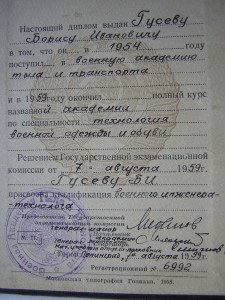 Настоящий диплом выдан Гусеву
Борису Ивановичу
в том, что он в 1954 году
поступил в военную академию
тыла и транспорта
и в 1959 году окончил полный курс
названной академии
по специальности технология
военной одежды и обуви
Решением Государственной экзаменационной
комиссии от 7 августа 1959 г.
Гусеву Б.И.
присвоена квалификация военного инженера-
технолога
Председатель Государственной
экзаменационной комиссии
генерал-майор
Начальник академии
генерал
М. П.
Город Ленинград, августа 1959 г.
Регистрационный № 6992
Московская типография Гознака. 1958.